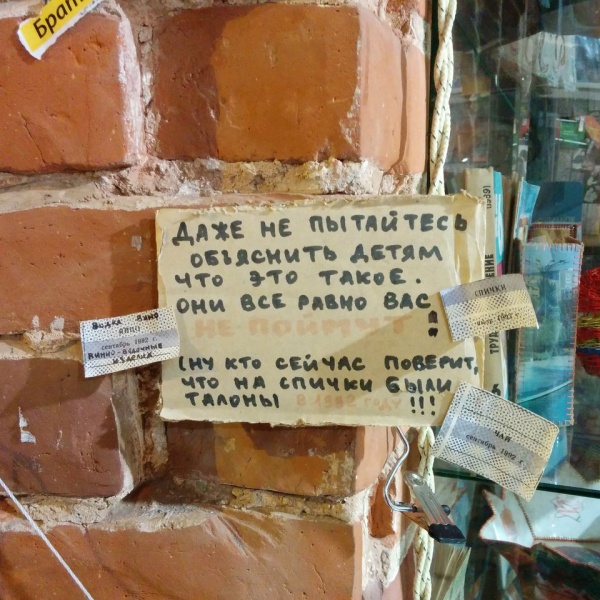 ДАЖЕ НЕ ПЫТАЙТЕСЬ
ОБЪЯСНИТЬ ДЕТЯМ
ЧТО ЭТО ТАКОЕ.
ОНИ ВСЕ РАВНО ВАС
НЕ ПОЙМУТ !!
(НУ КТО СЕЙЧАС ПОВЕРИТ,
ЧТО НА СПИЧКИ БЫЛИ
ТАЛОНЫ В 1982 ГОДУ !!!
ВОДКА ВИНО
сентябрь 1982 г.
ВИННО-ВОДОЧНЫЕ
ИЗДЕЛИЯ
СПИЧКИ
ЧАЙ
сентябрь